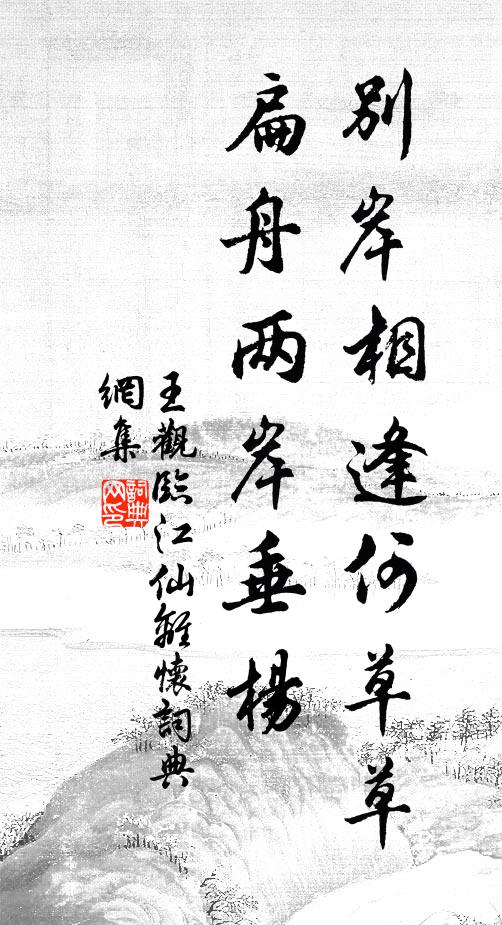 别岸相逢何草草
扁舟两岸垂楊
王觀臨江仙離懷詞典
網集
詞典网印